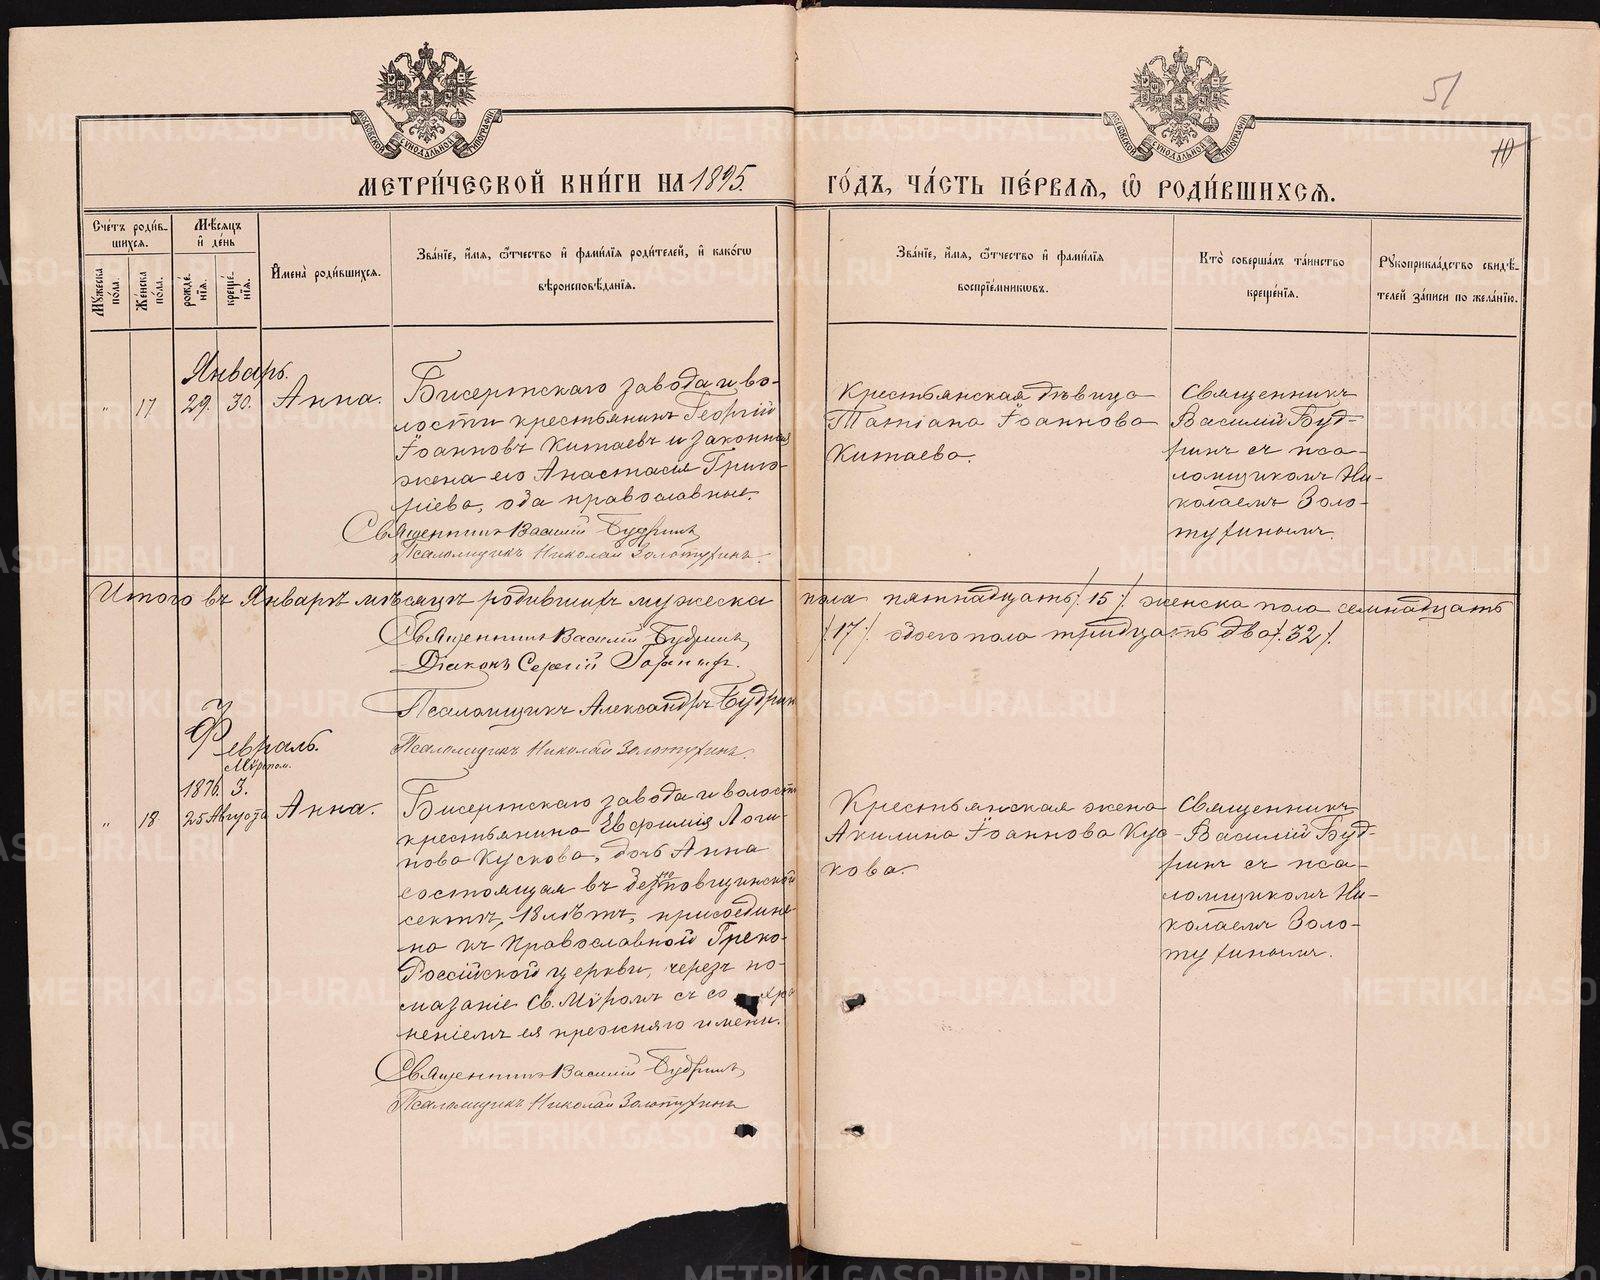 51
10
МЕТРИ́ЧЕСКОЙ КНИ́ГИ НА 1895.
ГО́ДЪ, ЧА́СТЬ ПЕ́РВАѦ, Ѡ҆ РОДИ́ВШИХСѦ.
Сче́тъ роди́в-
шихся.
Мѣ́сяцъ
и҆ де́нь
Мꙋ́жеска
по́ла.
Же́нска
по́ла.
рожде́-
нїя.
креще́-
нїя.
И҆мена̀ роди́вшихся.
Зва́нїе, и҆́мя, ѻ҆́тчество и҆ фами́лїя роди́телей, и҆ како́гѡ
вѣроисповѣ́данїя.
Зва́нїе, и҆́мя, ѻ҆́тчество и҆ фами́лїя
воспрїе́мникѡвъ.
Кто̀ соверша́лъ та́инство
креще́нїя.
Рꙋкоприкла́дство свидѣ́-
телей за́писи по жела́нїю.
Январь.
" 17 29. 30. Анна.
Бисертскаго завода и во-
лости крестьянинъ Георгій
Іоанновъ Китаевъ и законная
жена его Анастасія Григо-
ріева, оба православные.
Священникъ Василій Будринъ
Псаломщикъ Николай Золотухинъ.
Крестьянская дѣвица
Татіана Іоаннова
Китаева.
Священникъ
Василій Буд-
ринъ съ пса-
ломщикомъ Ни-
колаемъ Золо-
тухинымъ.
Итого въ Январѣ мѣсяцѣ родившихъ мужеска пола пятнадцать /15/. женска пола семнадцать
/17/. обоего пола тридцать два /.32/.
Священникъ Василій Будринъ
Діаконъ Сергій
Псаломщикъ Александръ Будрин
Псаломщикъ Николай Золотухинъ.
Февраль.
Мѵром.
1876. 3.
" 18 25 Августа Анна.
Бисертскаго завода и волости
крестьянина Евфимія Логи-
нова Кускова, дочь Анна
состоящая въ безпоповщинской
сектѣ, 18 лѣтъ, присоедине-
на къ Православной Греко-
Россійской церкви, черезъ по-
мазаніе Св. Мѵромъ съ со хра
неніемъ ея прежняго имени.
Священникъ Василій Будринъ
Псаломщикъ Николай Золотухинъ
Крестьянская жена
Акилина Іоаннова Кус-
кова.
Священникъ
Василій Буд-
ринъ съ пса-
ломщикомъ Ни-
колаемъ Золо-
тухинымъ.
METRIKI.GASO-URAL.RU